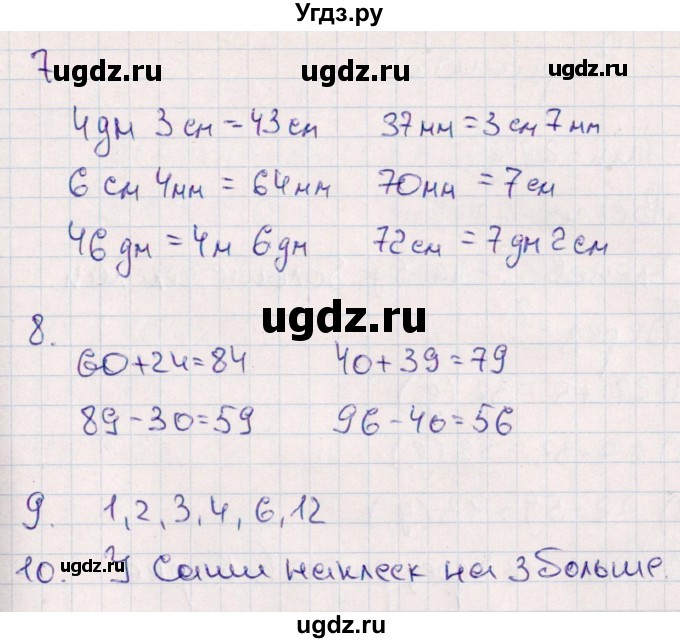 Угдз.ру
7 ugdz.ru ugdz.ru ugdz.ru
4дм 3см = 43см 37мм = 3см 7мм
6 см 4мм = 64мм 70мм = 7см
46 дм = 4м 6дм 72см = 7дм 2см
ugdz.ru
8.
60+24=84 40+39=79
89-30=59 96-40=56
9. 1,2,3,4,6,12
10. У Саши наклеек на 3 больше.
ugdz.ru ugdz.ru ugdz.ru
ugdz.ru